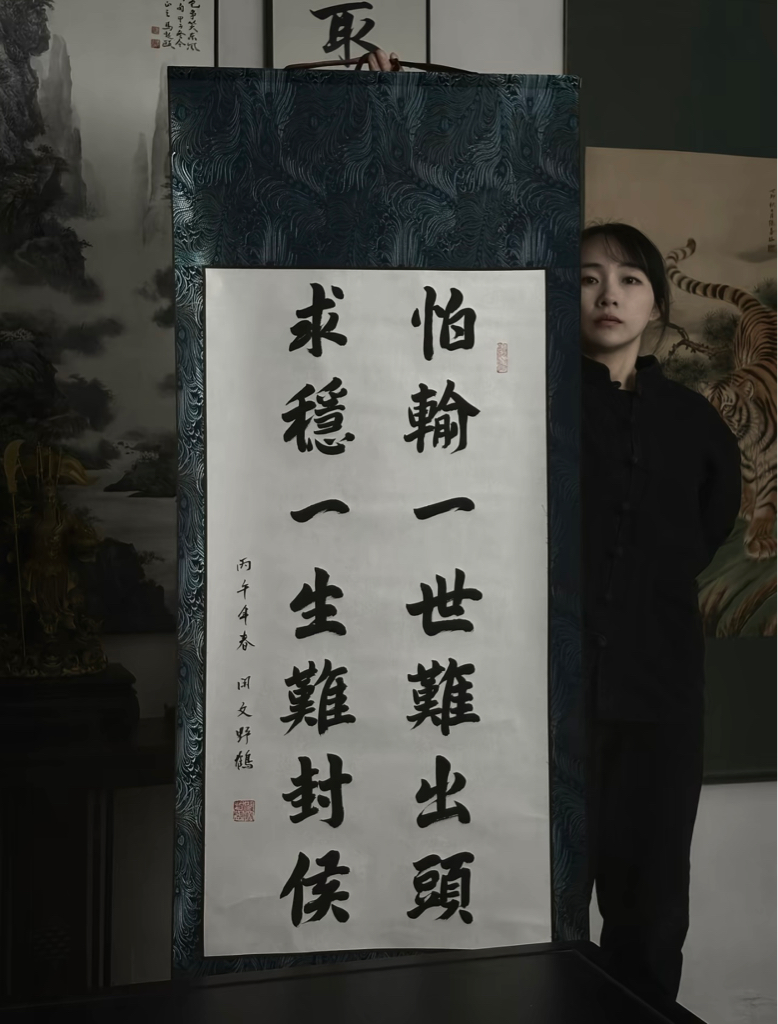 怕輸一世難出頭
求穩一生難封侯
丙午年春 闲文野鶴
取